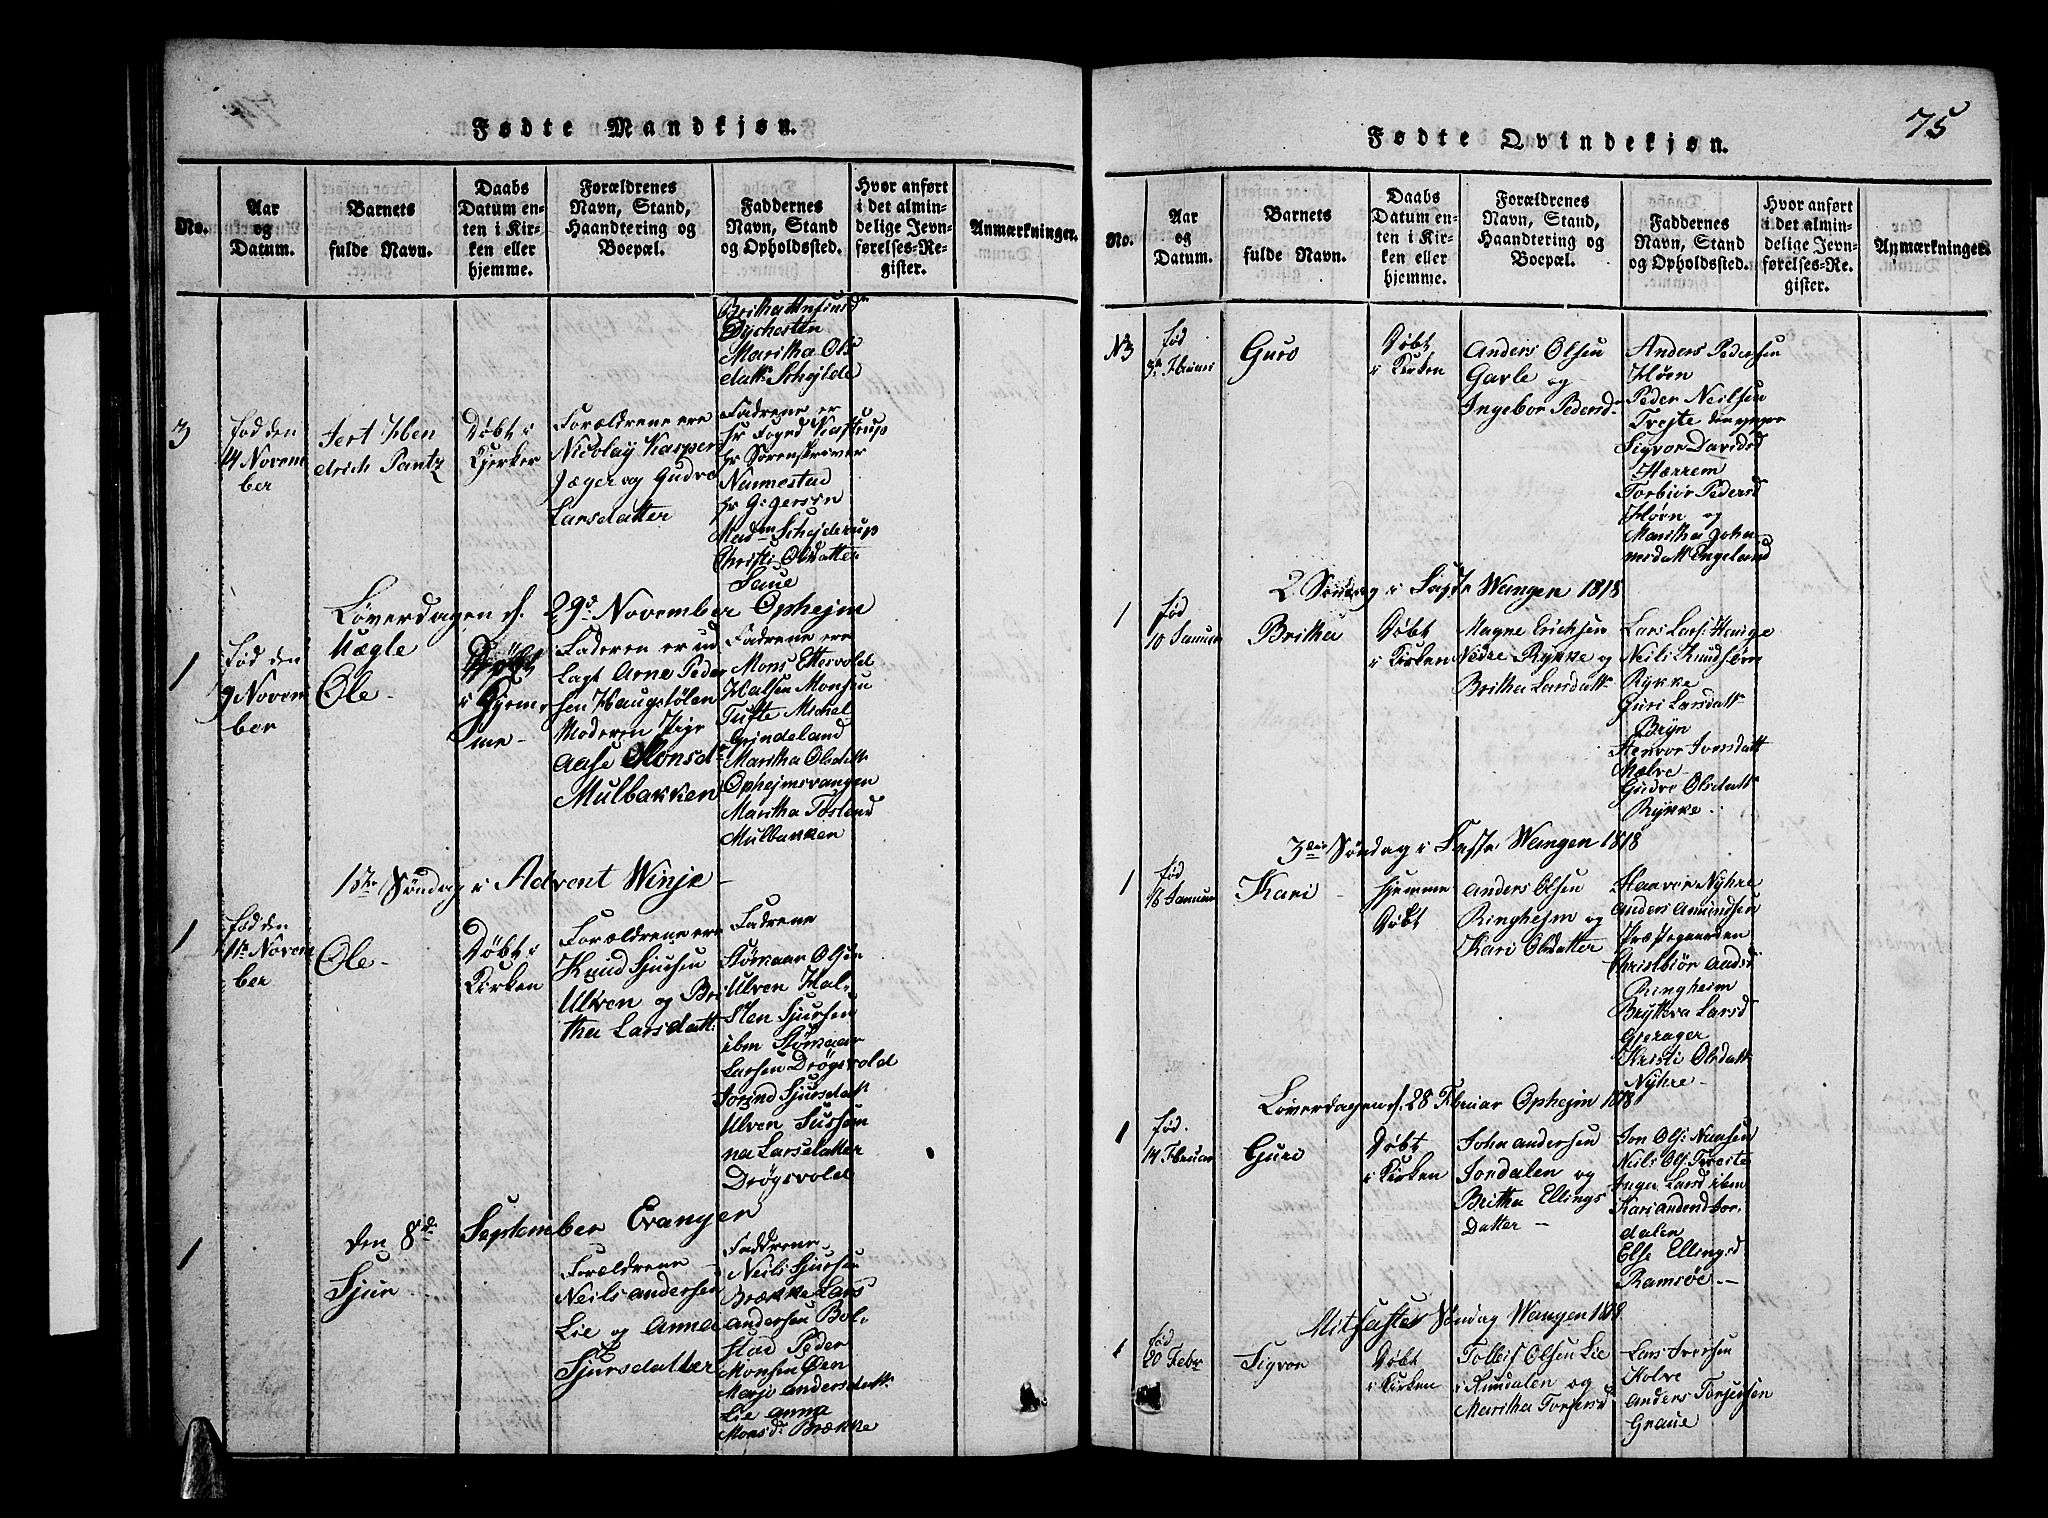 75
Fødte Mandkjøn.
No.
Aar
og
Datum.
Barnets
fulde Navn.
Daabs
Datum en-
ten i Kir-
ken eller
hjemme.
Forældrenes
Navn, Stand,
Haandtering og
Boepæl.
Faddernes
Navn, Stand
og Opholdssted.
Hvor anført
i det almin-
delige Jevn-
førelses-Re-
gister.
Anmærkninger.
Britha Anfinsd
Dychesten
Maritha Ols
datt Schjilde
3
fød den
14 Novem
ber
Jert Hen
drich Pantz
Døbt i
Kjerker
Forældrene ere
Nicolay Kasper
Jæger og Gudve
Larsdatter
Fadrene er
hr Foged Kastrup
hr Sorenskriver
Nummestad
hr
Madm Schejderup
Christi Olsdatter
Saue
Løverdagen d. 29de November Ophejm
1
fød den
9 Novem
ber
Uægte
Ole
Døbt
i Hjem
me
Faderen er ud
lagt Arne Peder
sen Haugstølen
Moderen Pige
Aase Monsd
Mulbakken
Fadrene ere
Mons Ettesvold
Halsten Monsen
Tufte Michel
Grindeland
Maritha Olsdatt
Ophejmsvangen
Maritha Tosland
Mulbakken
1ste Søndag i Advent Winje
1
fød den
11te Novem
ber
Ole
Døbt i
Kirken
Forældrene ere
Knud Sjursen
Ulven og Bri
tha Larsdatt:
Fadrene
Størkaar Olsen
Ulven Hal-
sten Sjursen
iben Størkaar
Larsen Drøgsvold
Sjursdatt
Ulven Susan
na Larsdatter
Drøgsvold
Den 8de September Evanger
1
Sjur
Forældrene
Neils Andersen
Lie og Anna
Sjursdatter
Faddrene
Neils Sjursen
Brække Lars
Andersen Bol-
stad Peder
Monsen Øen
Marjo Andersdatt
Lie Anna
Monsd: Brække
Fødte Qvindekjøn.
No.
Aar
og
Datum.
Barnets
fulde Navn.
Daabs
Datum en-
ten i Kir-
ken eller
hjemme.
Forældrenes
Navn, Stand,
Haandtering og
Boepæl.
Faddernes
Navn, Stand
og Opholdssted.
Hvor anført
i det almin-
delige Jevn-
førelses-Re-
gister.
Anmærkninger.
N3
fød
3de Februari
Guro
Døbt
i Kirken
Anders Olsen
Gavle og
Ingebor Pedersd
Anders Pedersen
Høen
Peder Neilsen
Trejte den yngre
Sigvor Davidsd
Hærrem
Torbiør Pedersd
Høen og
Maritha Johan
nesdatt Engeland
2 Søndag i Faste Wangen 1818
1
fød
10 Januar
Britha
Døbt
i Kirken
Magne Erichsen
Nedre Rykke og
Britha Larsdatt
Lars Lars: Hauge
Neils Knudssøn
Rykke
Guri Larsdatt
Bryn
Iversdatt
Mølve
Gudve Olsdatt
Rykke
3die Søndag i Faste Wangen 1818
1
fød
18 Januar
Kari
hjemme
Døbt
Anders Olsen
Ringhejm og
Kari Olsdatter
Haavor Nyhre
Anders Amundsen
Præstegaarden
Christbiør Andsd
Ringheim
Brytteva Larsd
Gjerager
Kristi Olsdatt
Nyhre
Løverdagen d. 28 Februar Ophejm 1818
1
fød.
14 Februar
Guri
Døbt
i Kirken
John Andersen
Jordalen og
Britha Ellings
Datter
Jon Ols:
Neils Ols
Inger Larsd ibm
Kari Andersd Jor-
dalen
Else Ellingsd
Ramsøe
Mitfaste Søndag Wangen 1818
1
fød
20 Febr
Sigvor
Døbt
i Kirken
Tolleif Olsen Lie
i Rundalen og
Maritha Torjersd
Lars Iversen
Kolve
Anders Torjersen
Graue